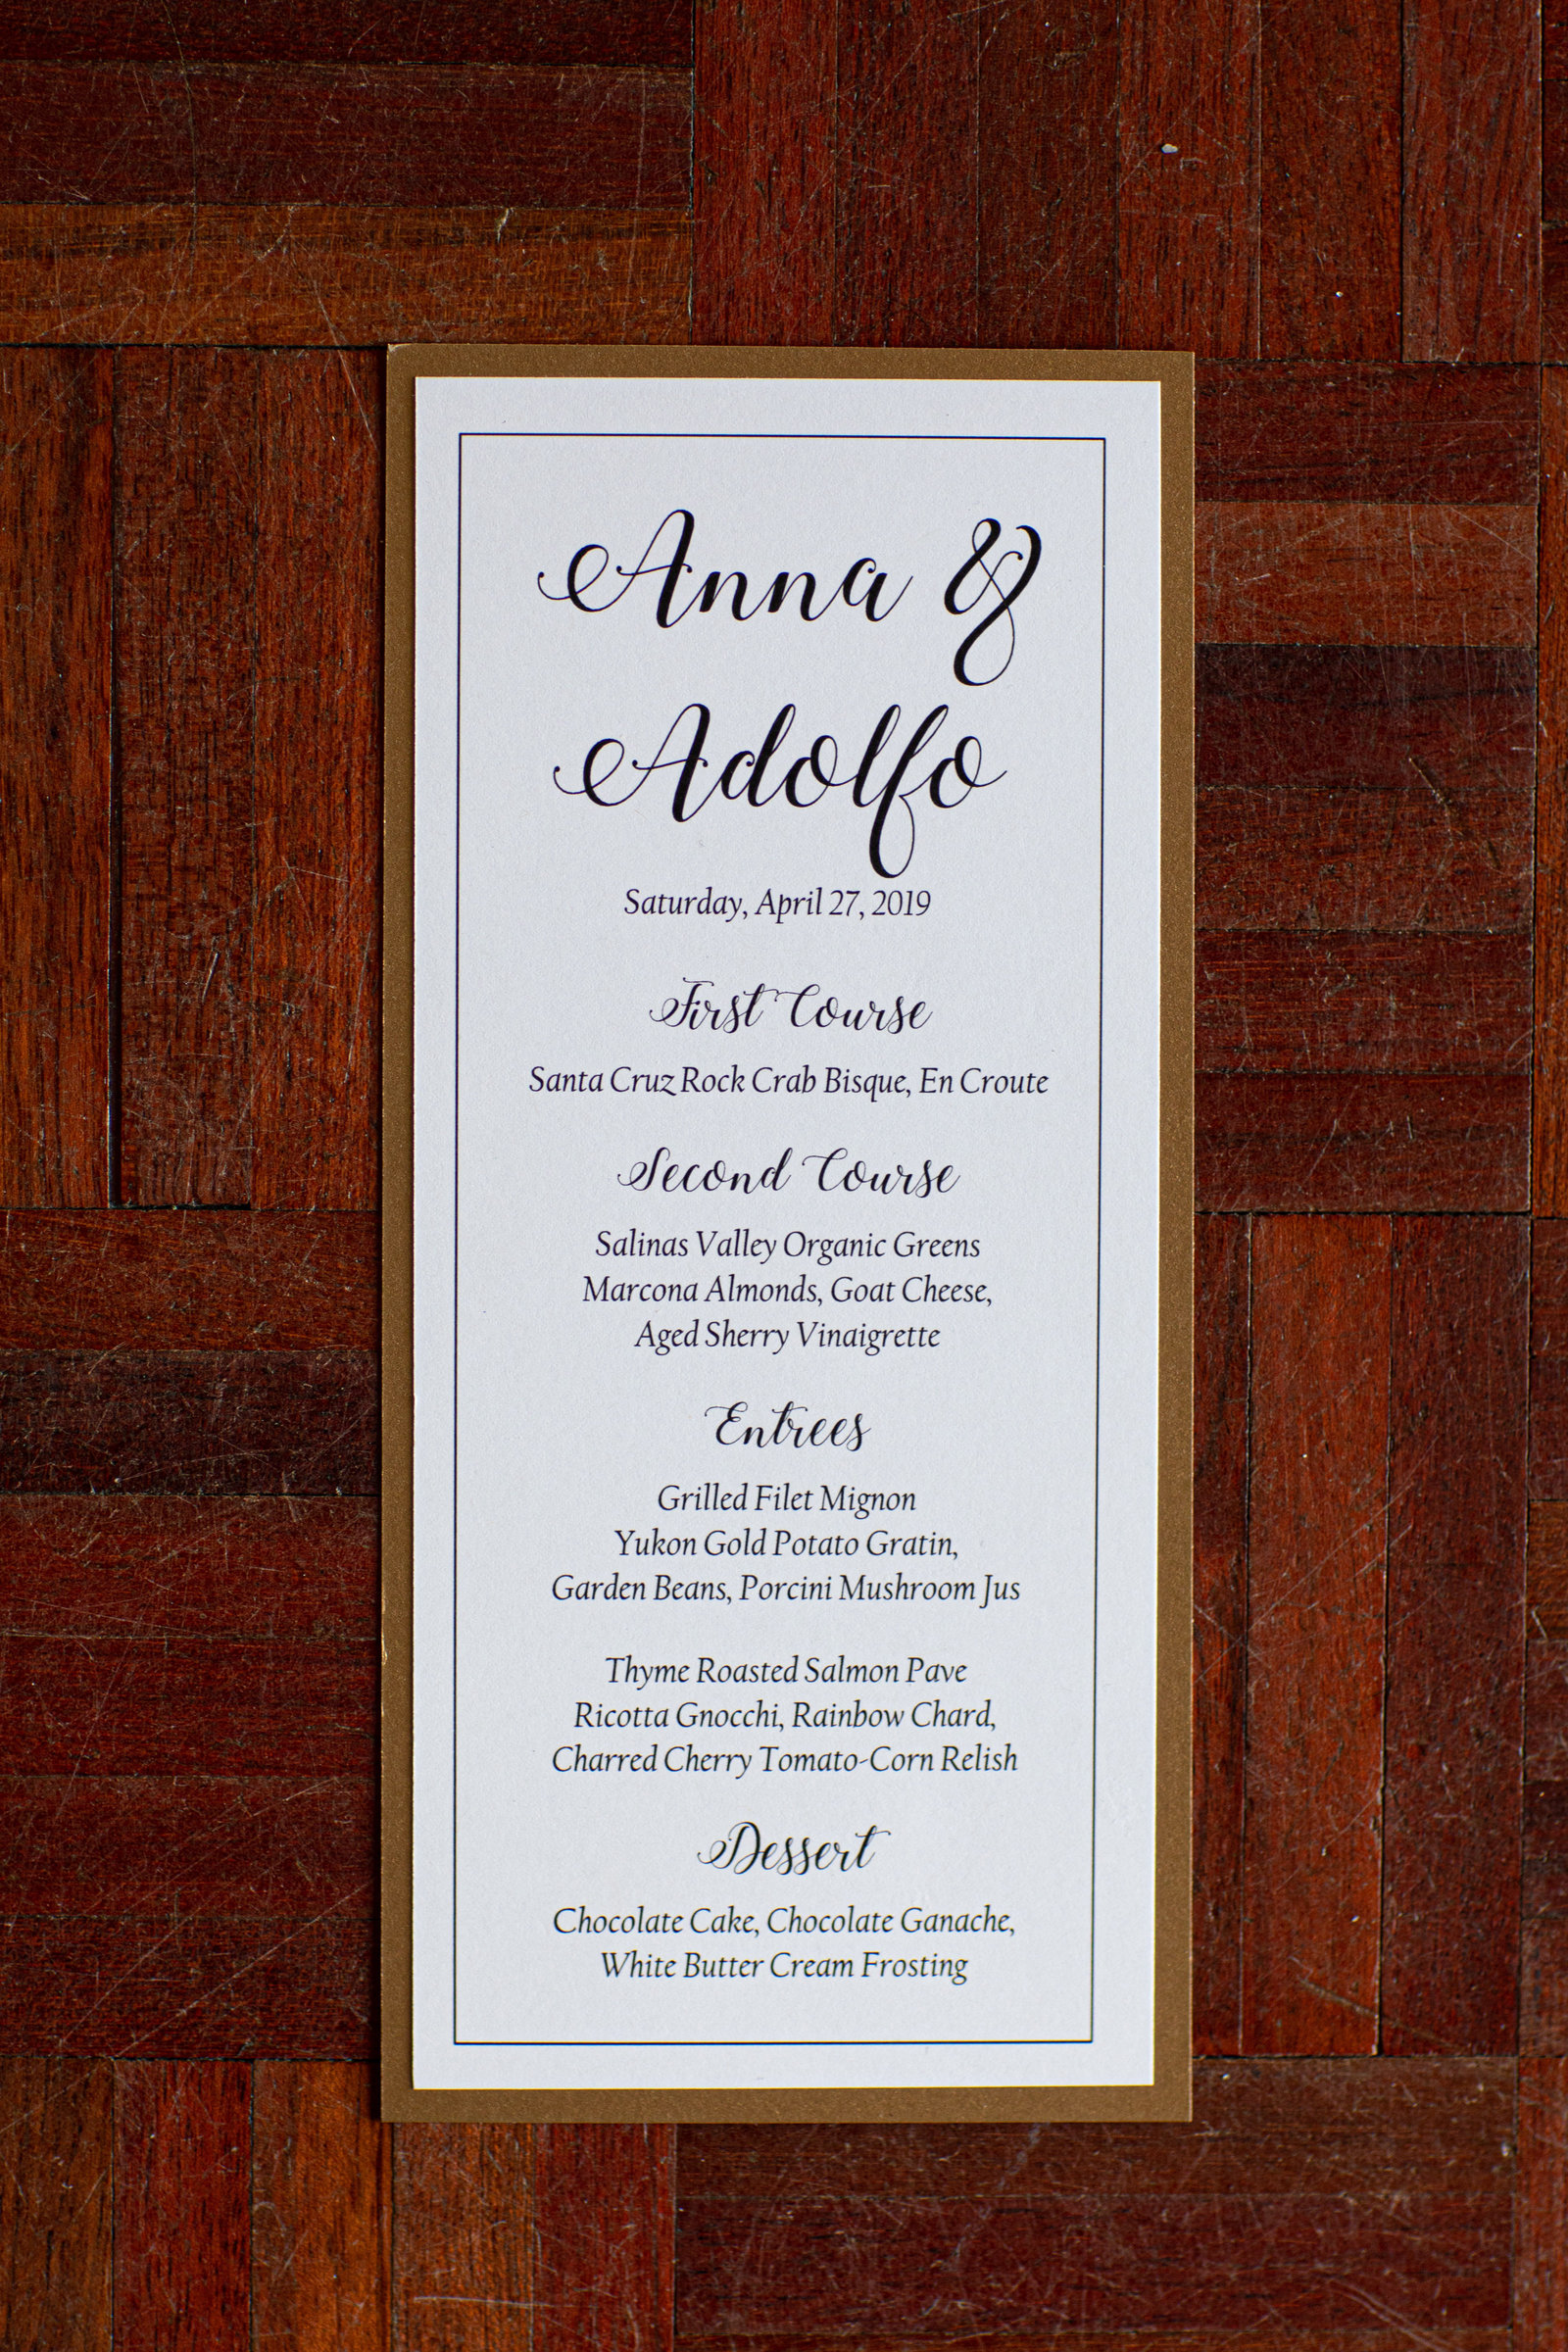 Anna &
Adolfo
Saturday, April 27, 2019
First Course
Santa Cruz Rock Crab Bisque, En Croute
Second Course
Salinas Valley Organic Greens
Marcona Almonds, Goat Cheese,
Aged Sherry Vinaigrette
Entrees
Grilled Filet Mignon
Yukon Gold Potato Gratin,
Garden Beans, Porcini Mushroom Jus
Thyme Roasted Salmon Pave
Ricotta Gnocchi, Rainbow Chard,
Charred Cherry Tomato-Corn Relish
Dessert
Chocolate Cake, Chocolate Ganache,
White Butter Cream Frosting